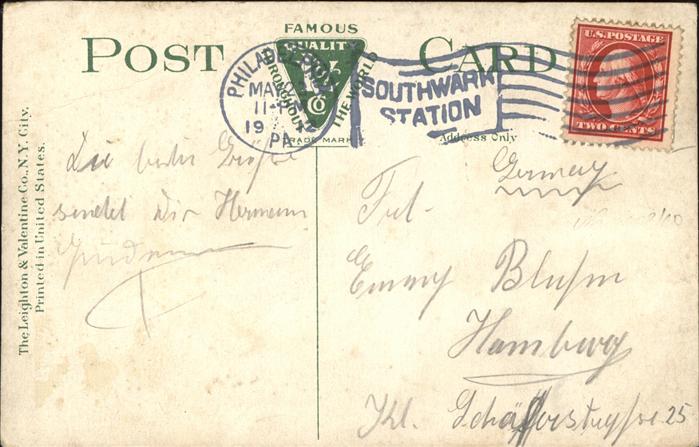 FAMOUS
POST CARD
QUALITY
THROUGHOUT THE WORLD
TRADE MARK
Address Only
PHILADELPHIA
MAY
11-
19 12
PA.
SOUTHWARK
STATION
U.S. POSTAGE
TWO CENTS
The Leighton & Valentine Co., N.Y. City.
Printed in United States.
Die besten Grüße
sendet Dir Hermann
Germany
Frl.
Emmy Bluhm
Hamburg
Kl. Schäferstrasse 25